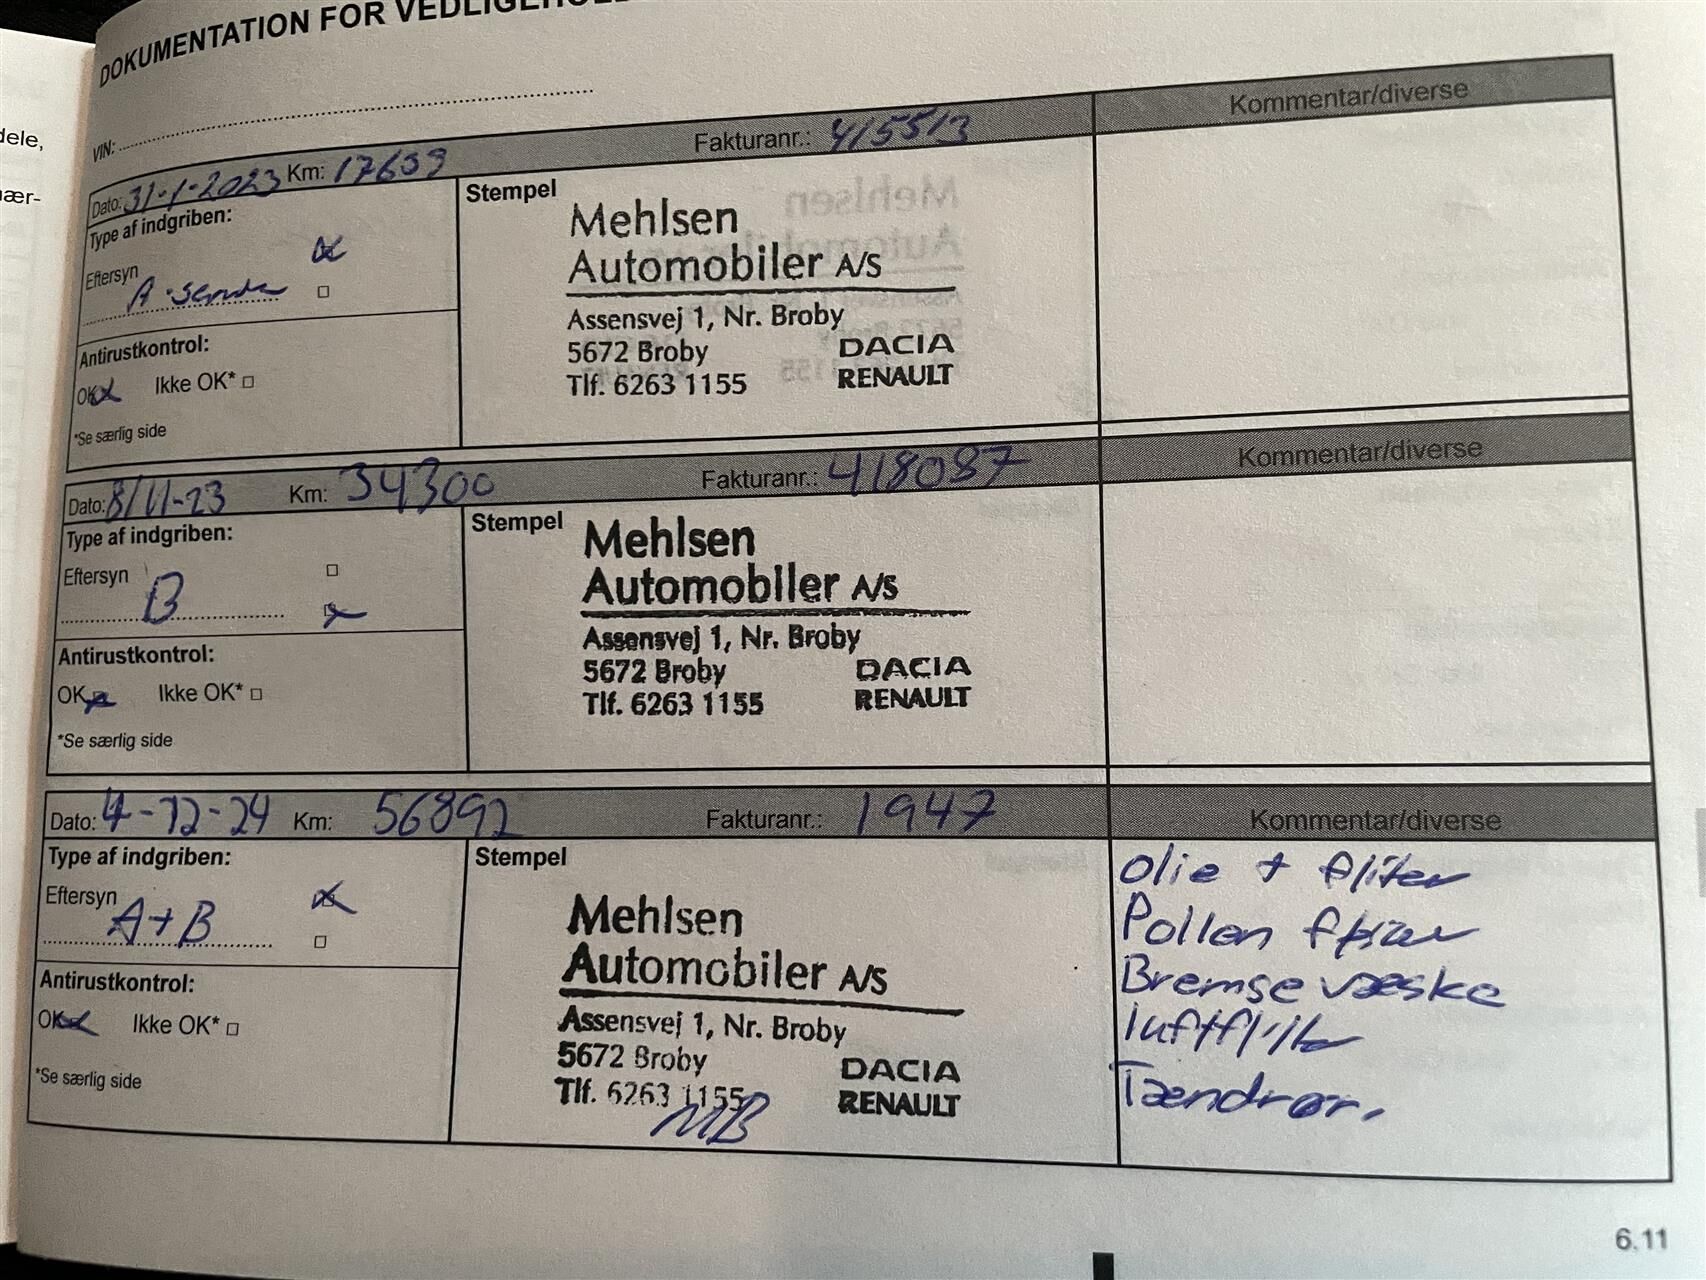 DOKUMENTATION FOR
VIN:
dele,
nær-
Dato: 31-1-2023 Km: 17659 Fakturanr.: 415513 Kommentar/diverse
Type af indgriben:
Eftersyn
A-
Antirustkontrol:
OK Ikke OK*
*Se særlig side
Stempel
Mehlsen
Automobiler A/S
Assensvej 1, Nr. Broby
5672 Broby DACIA
Tlf. 6263 1155 RENAULT
Dato: 8/11-23 Km: 34300 Fakturanr.: 418087 Kommentar/diverse
Type af indgriben:
Eftersyn
B
Antirustkontrol:
OK Ikke OK*
*Se særlig side
Stempel
Mehlsen
Automobiler A/S
Assensvej 1, Nr. Broby
5672 Broby DACIA
Tlf. 6263 1155 RENAULT
Dato: 4-12-24 Km: 56892 Fakturanr.: 1947 Kommentar/diverse
Type af indgriben:
Eftersyn
A+B
Antirustkontrol:
OK Ikke OK*
*Se særlig side
Stempel
Mehlsen
Automobiler A/S
Assensvej 1, Nr. Broby
5672 Broby DACIA
Tlf. 6263 1155 RENAULT
MB
Olie + filter
Pollen
Bremse væske
Tændrør.
6.11